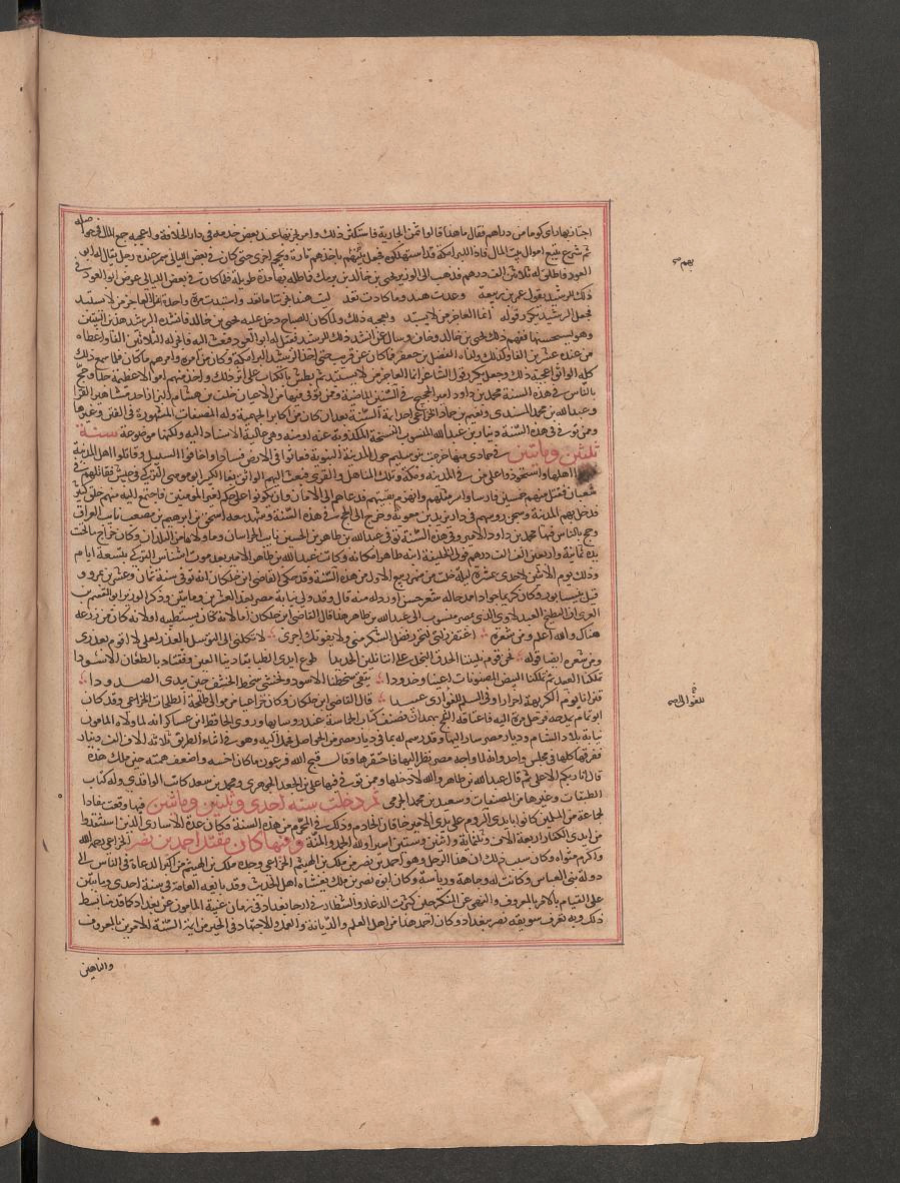 اجتاز بها راى كوما من دراهم فقال ما هذا قالوا ثمن الجارية فاستكثر ذلك وامر بخزنها عند بعض خدمه فى دار الخلافة واعجبه جمع المال فى حواصله
ثم شرع يتبع اموال بيت المال فاذا البرامكة قد استهلكوه فجعل يهم بهم ياخذهم تارة ويحجم اخرى حتى كان فى بعض الليالى سمر عنده رجل يقال له ابو
العود فاطلق له ثلاثين الف درهم فذهب الى الوزير يحيى بن خالد بن برمك فماطله بها مدة طويلة فلما كان فى بعض الليالى عرض ابو العود فى
ذلك للرشيد بقول عمر بن ربيعة وعدت هند وما كادت تعد ليت هندا انجزتنا ما تعد واستبدت مرة واحدة انما العاجز من لا يستبد
فجعل الرشيد يكرر قوله انما العاجز من لا يستبد ويعجبه ذلك ولما كان الصباح دخل عليه يحيى بن خالد فانشده الرشيد هذين البيتين
وهو يستحسنهما ففهم ذلك يحيى بن خالد وخاف وسال عن انشد ذلك للرشيد فقيل له ابو العود فبعث اليه فانجز له الثلاثين الفا واعطاه
من عنده عشرين الفا وكذلك ولداه الفضل وجعفر فما كان عن قريب حتى اخذ الرشيد البرامكة وكان من امره وامرهم ما كان فلما سمع ذلك
كله الواثق اعجبه ذلك وجعل يكرر قول الشاعر انما العاجز من لا يستبد ثم بطش بالكتاب على اثر ذلك واخذ منهم اموالا عظيمة جدا وحج
بالناس فى هذه السنة محمد بن داود امير الحجيج فى السنين الماضية وممن توفى فيها من الاعيان خلف بن هشام البزاز احد مشاهير القرا
وعبد الله بن محمد المسندى ونعيم بن حماد الخزاعى احد ايمة السنة بعد ان كان من اكابر الجهمية وله المصنفات المشهورة فى الفتن وغيرها
وممن توفى فى هذه السنة دينار بن عبد الله المنسوب اليه النسخة المكذوبة عنه او منه وهى عالية الاسناد اليه ولكنها موضوعة سنة
ثلثين وماتين فى جمادى منها خرجت بنو سليم حول المدينة النبوية فعاثوا فى الارض فسادا واخافوا السبيل وقاتلوا اهل المدينة
اهلها واستحوذوا على ما بين المدينة ومكة من تلك المناهل والقرى فبعث اليهم الواثق بغا الكبير ابو موسى التركى فى جيش فقاتلهم فى
شعبان فقتل منهم خمسين فارسا واسر مثلهم وانهزم بقيتهم فدعاهم الى الامان وان يكونوا على حكم امير المومنين فاجتمع اليه منهم خلق كثير
فدخل بهم المدينة وسجن روسهم فى دار يزيد بن معوية وخرج الى الحج فى هذه السنة وشهد معه اسحق بن ابرهيم بن مصعب نايب العراق
وحج بالناس فيها محمد بن داود الامير وفى هذه السنة توفى عبد الله بن طاهر بن الحسين نايب خراسان وما والاها من البلدان وكان خراج ما تحت
يده ثمانية واربعين الف الف درهم فولى الخليفة ابنه طاهرا مكانه وكانت وفاة عبد الله بن طاهر الامير بعد موت اشناس التركى بتسعة ايام
وذلك يوم الاثنين لاحدى عشرة ليلة خلت من شهر ربيع الاول من هذه السنة وقد حكى القاضى ابن خلكان انه توفى سنة ثمان وعشرين بمرو و
قيل بنيسابور وكان كريما جوادا ممدحا له شعر حسن اورد له منه قال وقد ولى نيابة مصر بعد العشرين وماتين وذكر الوزير ابو القسم بن
المغربى ان البطيخ العبدلاوى الذى بمصر منسوب الى عبد الله بن طاهر هذا قال القاضى ابن خلكان اما لانه كان يستطيبه او لانه كان من زرعه
هناك والله اعلم ومن شعره اغتفر زلتى لتحرز فضل الشكر منى ولا يفوتك اجرى لا تكلنى الى التوسل بالعذر لعلى لا اقوم بعذرى
ومن شعره ايضا قوله نحن قوم يليننا الحدق النجل على اننا نلين الحديدا طوع ايدى الظبا تقتادنا العين ونقتاد بالطعان الاسودا
تملكنا الصيد ثم تملكنا البيض المصونات اعينا وخدودا تتقى سخطنا الاسود ونخشى سخط الخشف حين يبدى الصدودا
فترانا يوم الكريهة احرارا وفى السلم للغوانى عبيدا قال القاضى ابن خلكان وكان خزاعيا من موالى طلحة الطلحات الخزاعى وقد كان
ابو تمام يمدحه فدخل مرة اليه فاعتاقه الثلج بهمدان فصنف كتاب الحماسة عند روسايها وروى الحافظ ابن عساكر انه لما ولاه المامون
نيابة بلاد الشام وديار مصر سار اليها وقد رسم له بما فى ديار مصر من الحواصل فحمل اليه وهو فى اثناء الطريق ثلاثة الاف الف دينار
ففرقها كلها فى مجلس واحد وانه لما واجه مصر نظر اليها فاحتقرها وقال قبح الله فرعون ما كان اخسه واضعف همته حين ملك هذه
قال انا ربكم الاعلى ثم قال عبد الله بن طاهر والله لا دخلتها وممن توفى فيها على بن الجعد الجوهرى ومحمد بن سعد كاتب الواقدى وله كتاب
الطبقات وغيرها من المصنفات وسعيد بن محمد الجرمى ثم دخلت سنة احدى وثلثين وماتين فيها وقعت مفادا
لجماعة من المسلمين كانوا بايدى الروم على يدى الامير خاقان الخادم وذلك فى المحرم من هذه السنة وكان عدة الاسارى الذين استنقذوا
من ايدى الكفار اربعة الاف وثلثماية واثنين وستين اسيرا ولله الحمد والمنة وفيها كان مقتل احمد بن نصر الخزاعى رحمه الله
واكرم مثواه وكان سبب ذلك ان هذا الرجل وهو احمد بن نصر بن ملك بن الهيثم الخزاعى وجده ملك بن الهيثم من اكبر الدعاة فى الناس الى
دولة بنى العباس وكانت له وجاهة ورياسة وكان ابوه نصر بن ملك يغشاه اهل الحديث وقد بايعه العامة فى سنة احدى وماتين
على القيام بالامر بالمعروف والنهى عن المنكر حين كثرت الدعار والشطار فى ارجا بغداد فى زمان غيبة المامون عن بغداد كما قدمنا بسط
ذلك وبه تعرف سويقة نصر ببغداد وكان احمد هذا من اهل العلم والديانة والعمل والاجتهاد فى الخير من ايمة السنة الامرين بالمعروف
والناهين
بهم صح
للغوانى صح